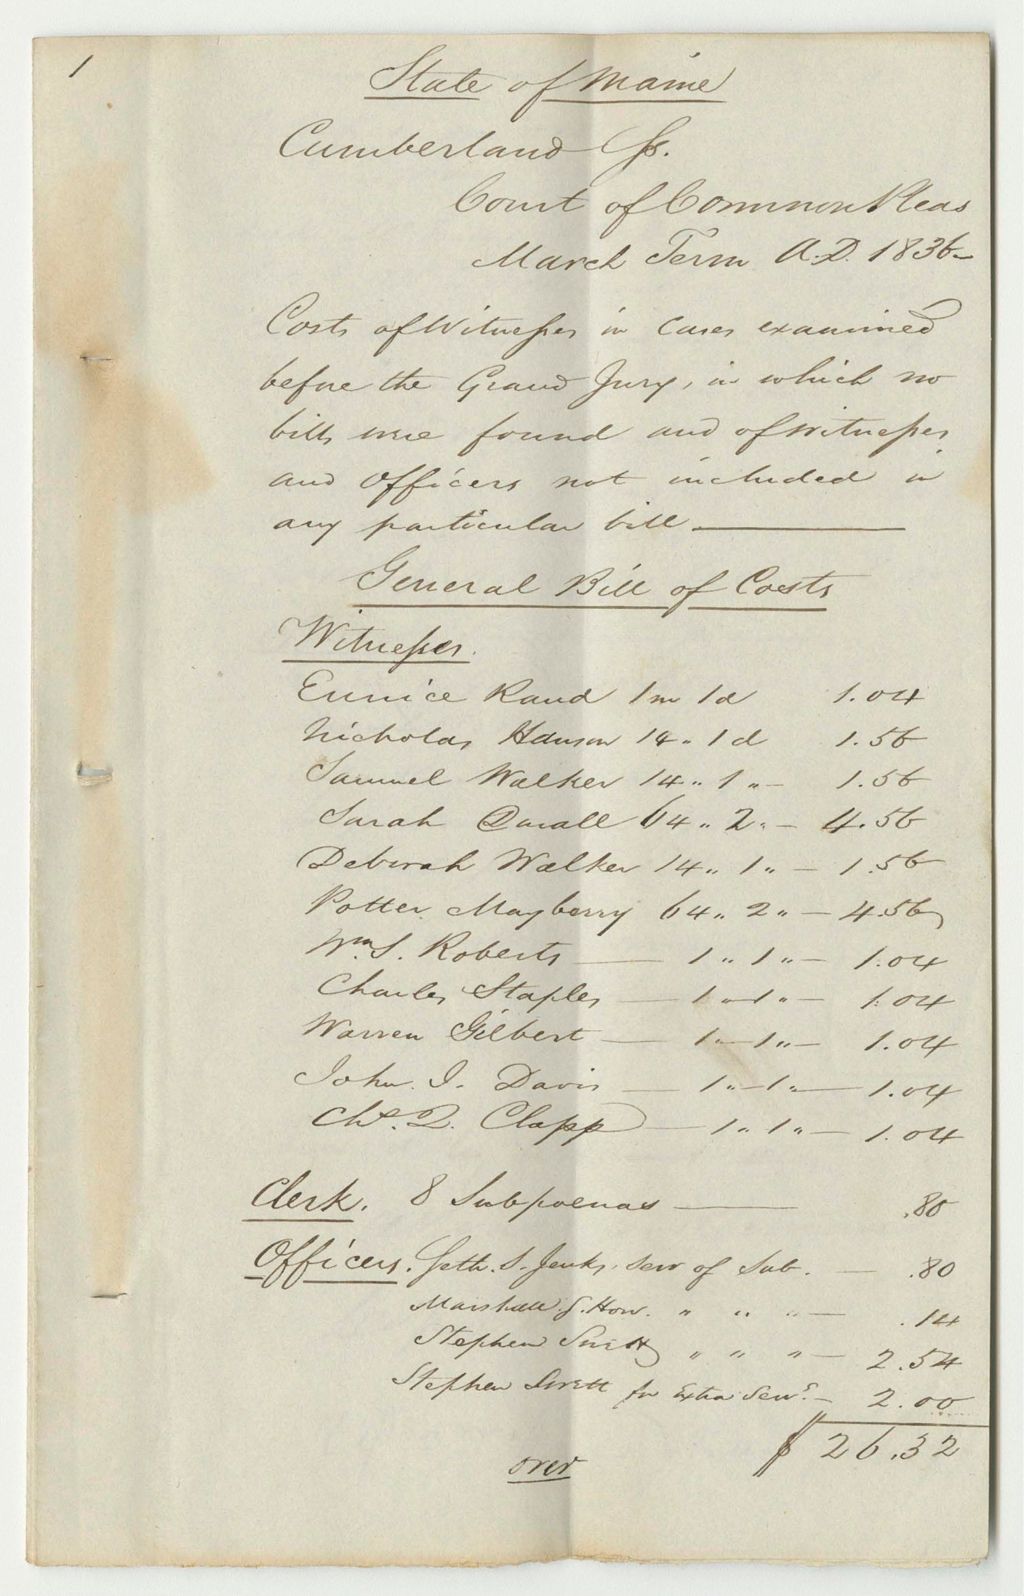 1
State of Maine
Cumberland Ss.
Court of Common Pleas
March Term A.D. 1836
Costs of Witnesses in Cases examined
before the Grand Jury, in which no
bills were found and of witnesses
and officers not included in
any particular bill
General Bill of Costs
Witnesses.
Eunice Rand 1m 1d 1.04
Nicholas Hanson 14 " 1d 1.56
Samuel Walker 14 " 1 " 1.56
Sarah Durall 64 " 2 " 4.56
Deborah Walker 14 " 1 " 1.56
Potter Mayberry 64 " 2 " 4.56
Wm. S. Roberts 1 " 1 " 1.04
Charles Staples 1 " 1 " 1.04
Warren Gilbert 1 " 1 " 1.04
John J. Davis 1 " 1 " 1.04
Chs. Q. Clapp 1 " 1 " 1.04
Clerk. 8 Subpoenas .80
Officers. Seth. S. Jenks, serv of Sub. .80
Marshall S. How. " " " .14
Stephen Swett " " " 2.54
Stephen Swett for Extra Servs. 2.00
$ 26.32
over